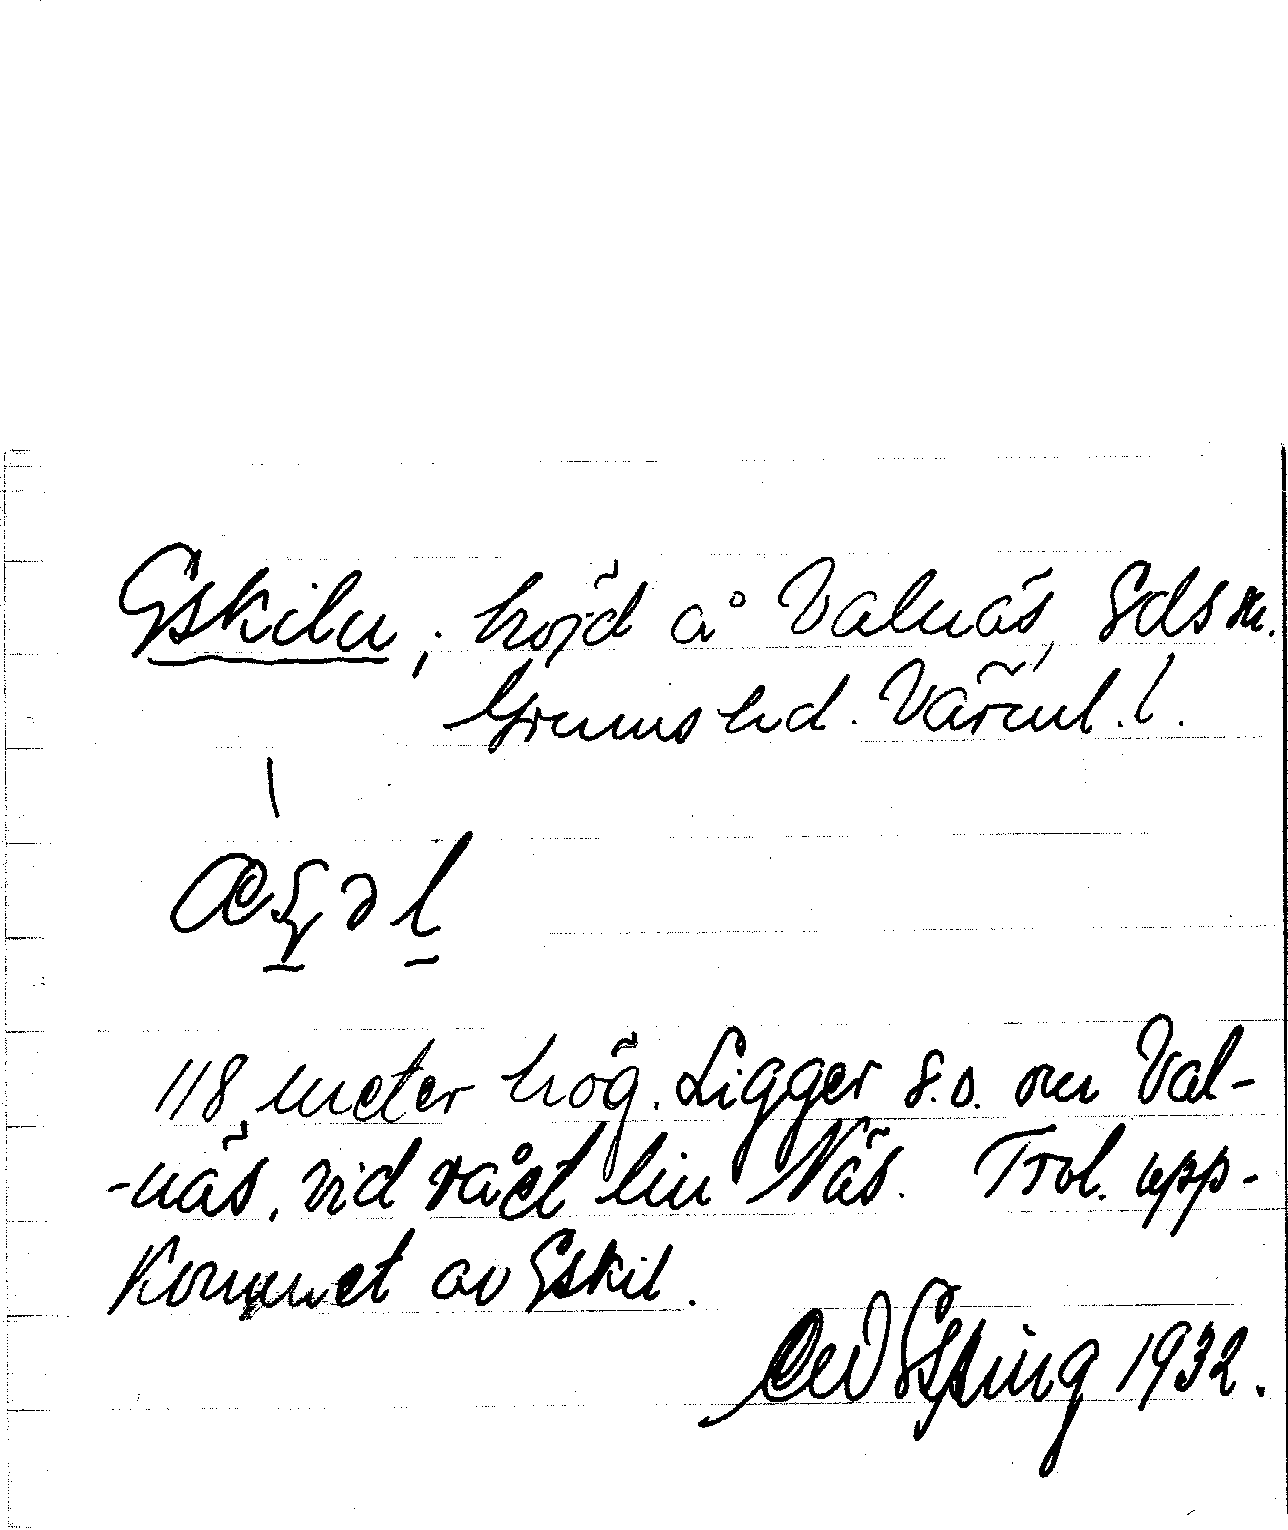 Eskiln; höjd å Valnäs, Eds sn.
Grums hd. Värml. l.
118 meter hög. Ligger s.o. om Val-
-näs, vid rået till Näs. Trol. upp-
kommet av Eskil.
1932.